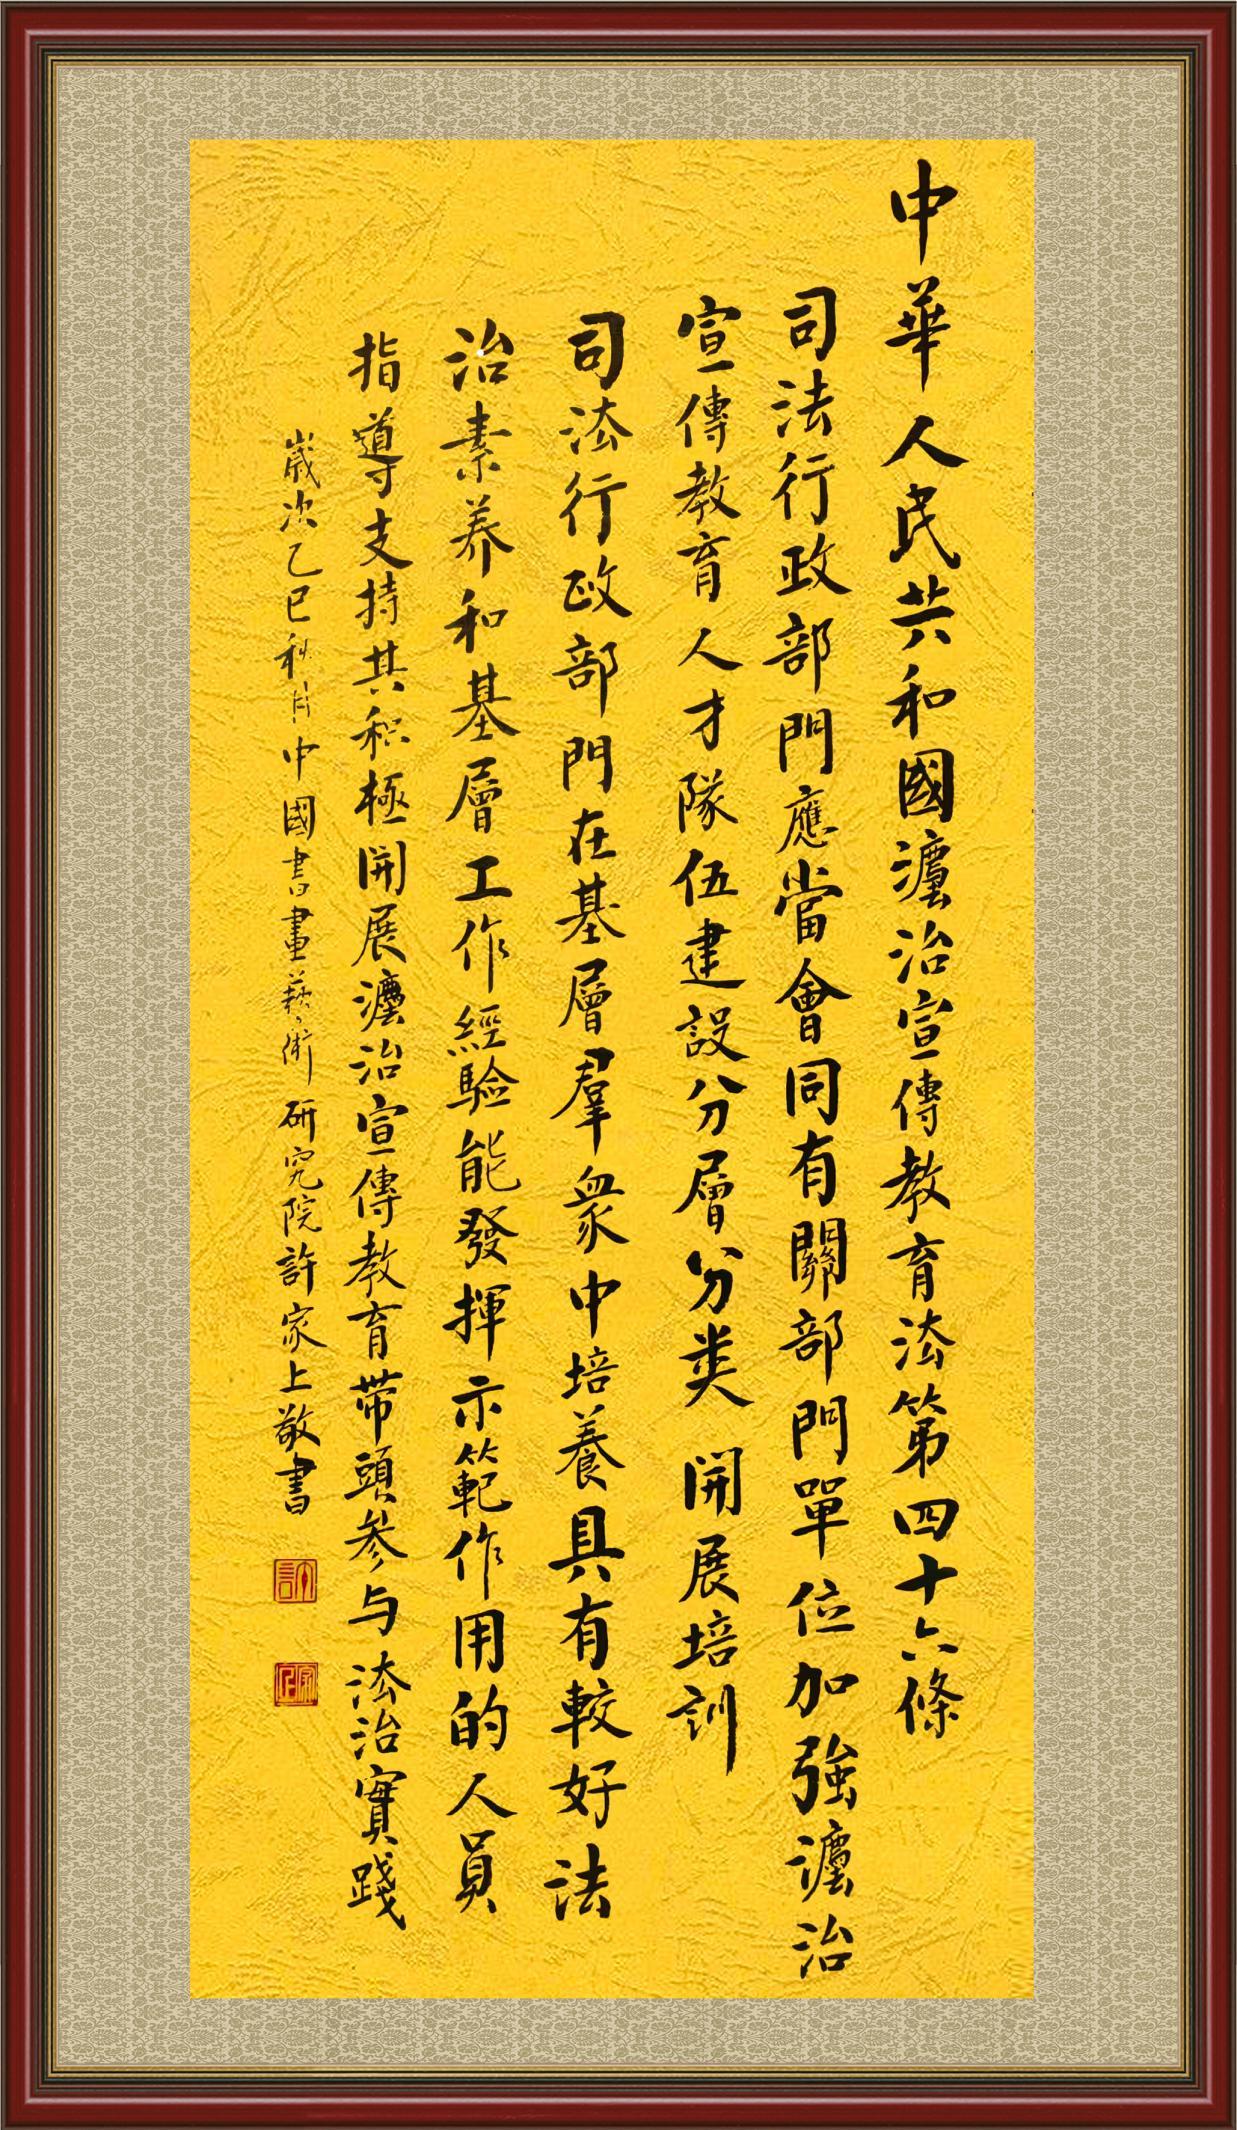 中華人民共和國灋治宣傳教育法第四十六條
司法行政部門應當會同有關部門單位加強灋治
宣傳教育人才隊伍建設分層分类開展培訓
司法行政部門在基層羣衆中培養具有較好法
治素养和基層工作經驗能發揮示範作用的人員
指導支持其积極開展灋治宣傳教育带頭参与法治實踐
嵗次乙巳秋月中國書畫藝術研究院許家上敬書